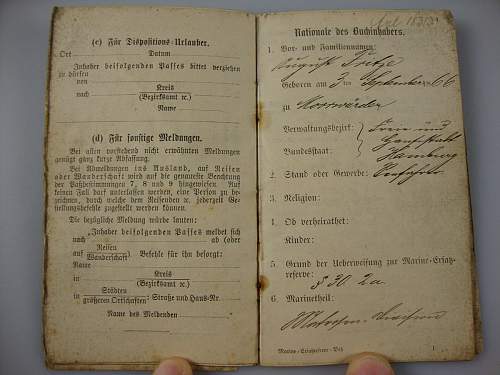 (c) Für Dispositions-Urlauber.
Ort Datum
Inhaber beifolgenden Passes bittet verziehen
zu dürfen
von
nach
Kreis
(Bezirksamt ꝛc.)
Name
(d) Für sonstige Meldungen.
Bei allen vorstehend nicht erwähnten Meldungen
genügt ganz kurze Abfassung.
Bei Abmeldungen ins Ausland, auf Reisen
oder Wanderschaft wird auf die genaueste Beachtung
der Paßbestimmungen 7, 8 und 9 hingewiesen. Auf
keinen Fall darf unterlassen werden, eine Person zu be-
zeichnen, durch welche dem Reisenden ꝛc. jederzeit Ge-
stellungsbefehle zugestellt werden können.
Die bezügliche Meldung würde lauten:
„Inhaber beifolgenden Passes meldet sich
nach ab (oder
auf Reisen
Wanderschaft). Befehle für ihn besorgt:
Name
in Kreis
(Bezirksamt ꝛc.)
in Städten
größeren Ortschaften: Straße und Haus-Nr.
Name des Meldenden
Nationale des Buchinhabers.
1. Vor- und Familiennamen:
August
Geboren am 3ten September 66
zu Moorwärder
Verwaltungsbezirk: Freie und
Hansestadt
Bundesstaat: Hamburg
2. Stand oder Gewerbe:
3. Religion:
4. Ob verheirathet:
Kinder:
5. Grund der Ueberweisung zur Marine-Ersatz-
reserve:
§ 30. 2a
6. Marinetheil:
Matrosen-Division
Marine-Ersatzreserve-Paß. 1